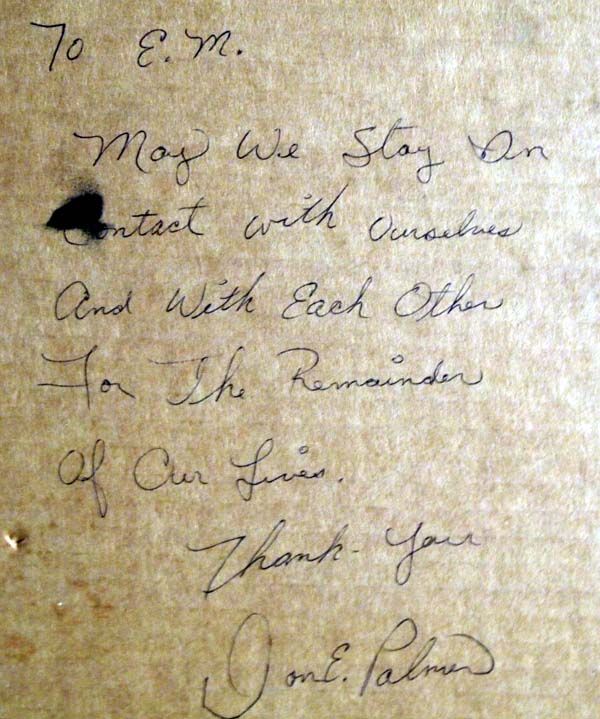 To E.M.
May We Stay In
Contact with Ourselves
And With Each Other
For The Remainder
Of Our Lives.
Thank-You
Jon E. Palmer